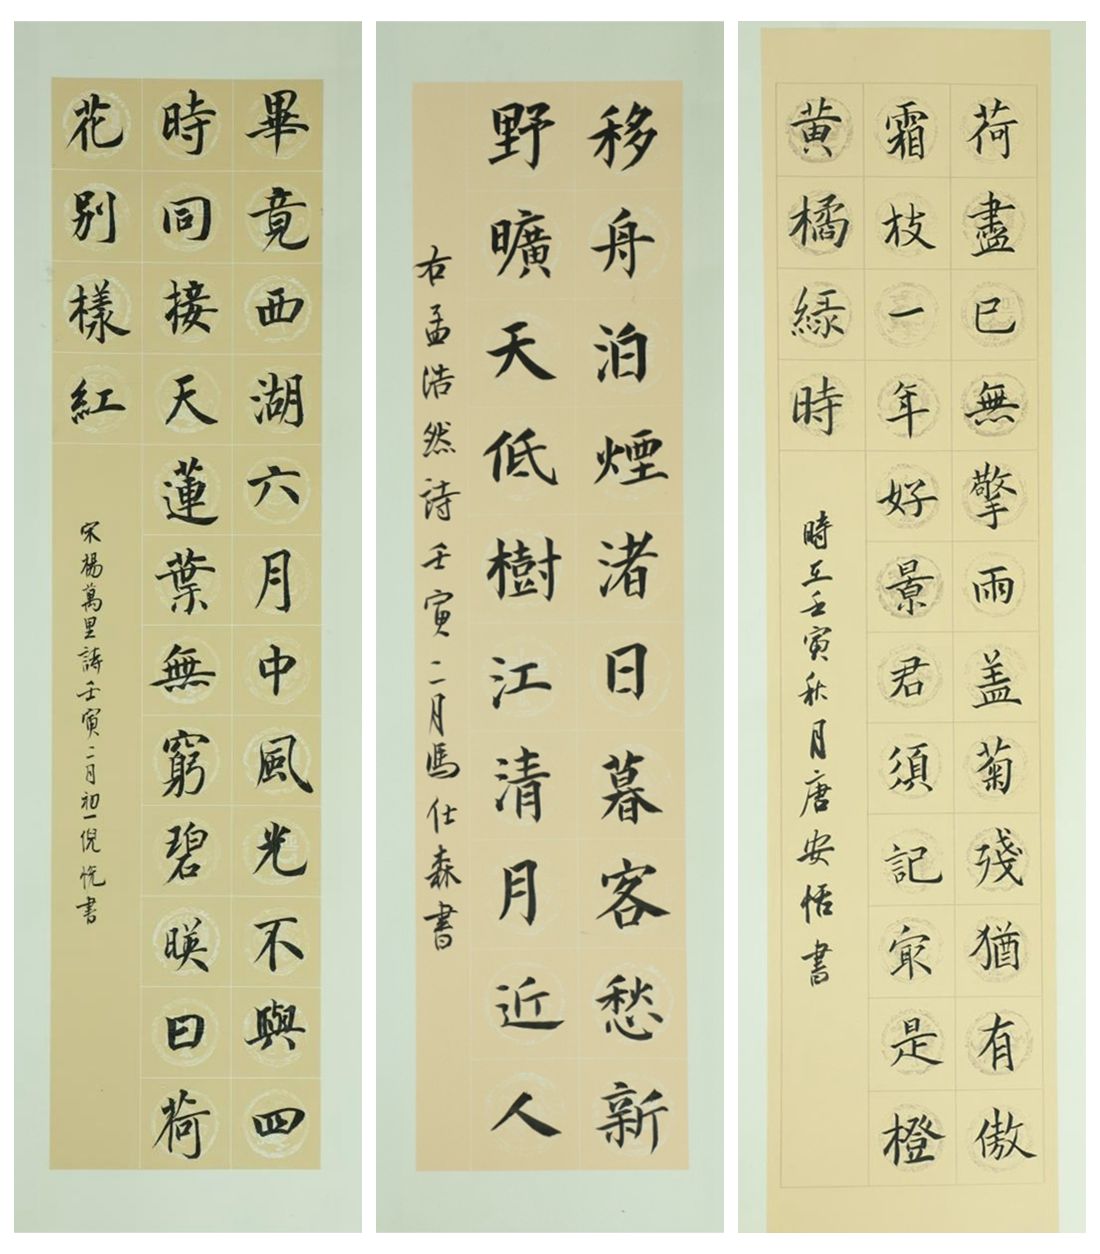 畢竟西湖六月中風光不與四
時同接天蓮葉無窮碧暎日荷
花別樣紅
宋楊萬里詩壬寅二月初一倪悦書
移舟泊煙渚日暮客愁新
野曠天低樹江清月近人
右孟浩然詩壬寅二月馮仕森書
荷盡已無擎雨盖菊殘猶有傲
霜枝一年好景君須記冣是橙
黄橘緑時
時在壬寅秋月唐安恬書